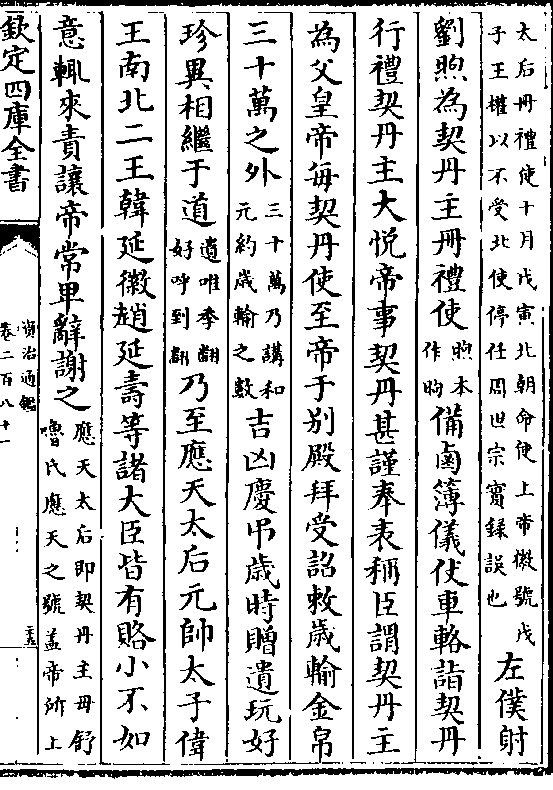 太后冊禮使十月戊寅北朝命使上帝徽號戊
子王權以不受北使停任周世宗實録誤也
左僕射
劉煦為契丹主冊禮使
煦本
作昫
備鹵簿儀仗車輅詣契丹
行禮契丹主大悦帝事契丹甚謹奉表稱臣謂契丹主
為父皇帝每契丹使至帝于别殿拜受詔敕歳輸金帛
三十萬之外
三十萬乃講和
元約歳輸之數
吉凶慶弔歳時贈遺玩好
珍異相繼于道
遺唯季翻
好呼到翻
乃至應天太后元帥太子偉
王南北二王韓延徽趙延壽等諸大臣皆有賂小不如
意輒來責讓帝常卑辭謝之
應天太后即契丹主母舒
嚕氏應天之號盖帝所上
欽定四庫全書
資治通鑑
卷二百八十一